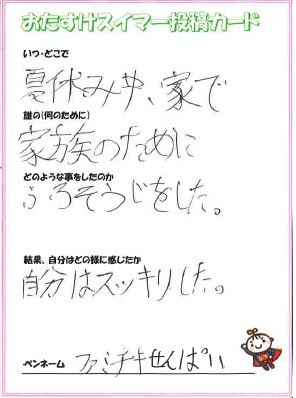 おたすけスイマー投稿カード
いつ・どこで
夏休み中、家で
誰の(何のために)
家族のために
どのような事をしたのか
ふろそうじをした。
結果、自分はどの様に感じたか
自分はスッキリした。
ペンネーム ファミチキせんぱい